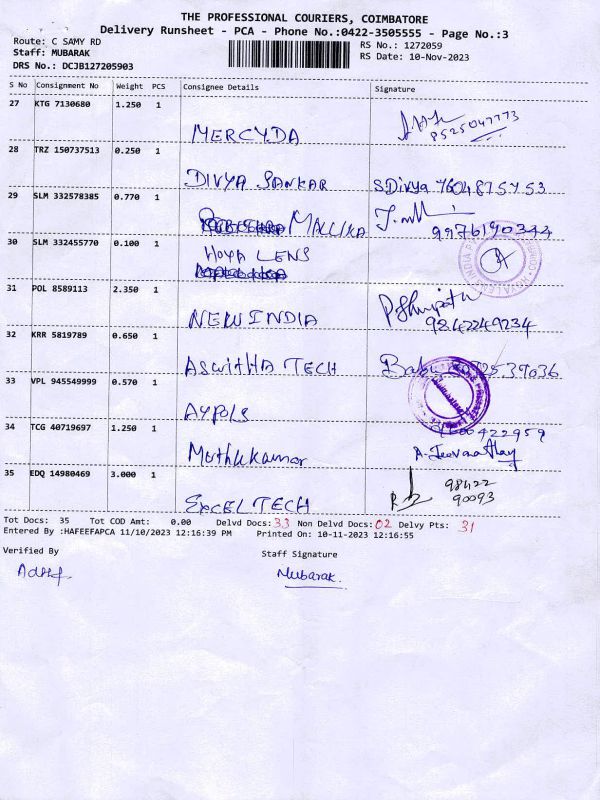 THE PROFESSIONAL COURIERS, COIMBATORE
Delivery Runsheet - PCA - Phone No.:0422-3505555 - Page No.:3
Route: C SAMY RD
RS No.: 1272059
Staff: MUBARAK
RS Date: 10-Nov-2023
DRS No.: DCJB127205903
S No Consignment No Weight PCS Consignee Details Signature
27 KTG 7130680 1.250 1
MERCYDA
28 TRZ 150737513 0.250 1
DIVYA SANKAR S.Divya 7604875753
29 SLM 332578385 0.770 1
MALLIKA 9976190344
30 SLM 332455770 0.100 1
HOYA LENS
31 POL 8589113 2.350 1
NEW INDIA 9842249234
32 KRR 5819789 0.650 1
ASWITHA TECH Babu
33 VPL 945549999 0.570 1
AYPOLS
34 TCG 40719697 1.250 1
Muthukumar
35 EDQ 14980469 3.000 1
98422
90093
EXCEL TECH
Tot Docs: 35 Tot COD Amt: 0.00 Delvd Docs: 33 Non Delvd Docs: 02 Delvy Pts: 31
Entered By :HAFEEFAPCA 11/10/2023 12:16:39 PM Printed On: 10-11-2023 12:16:55
Verified By Staff Signature
Mubarak.